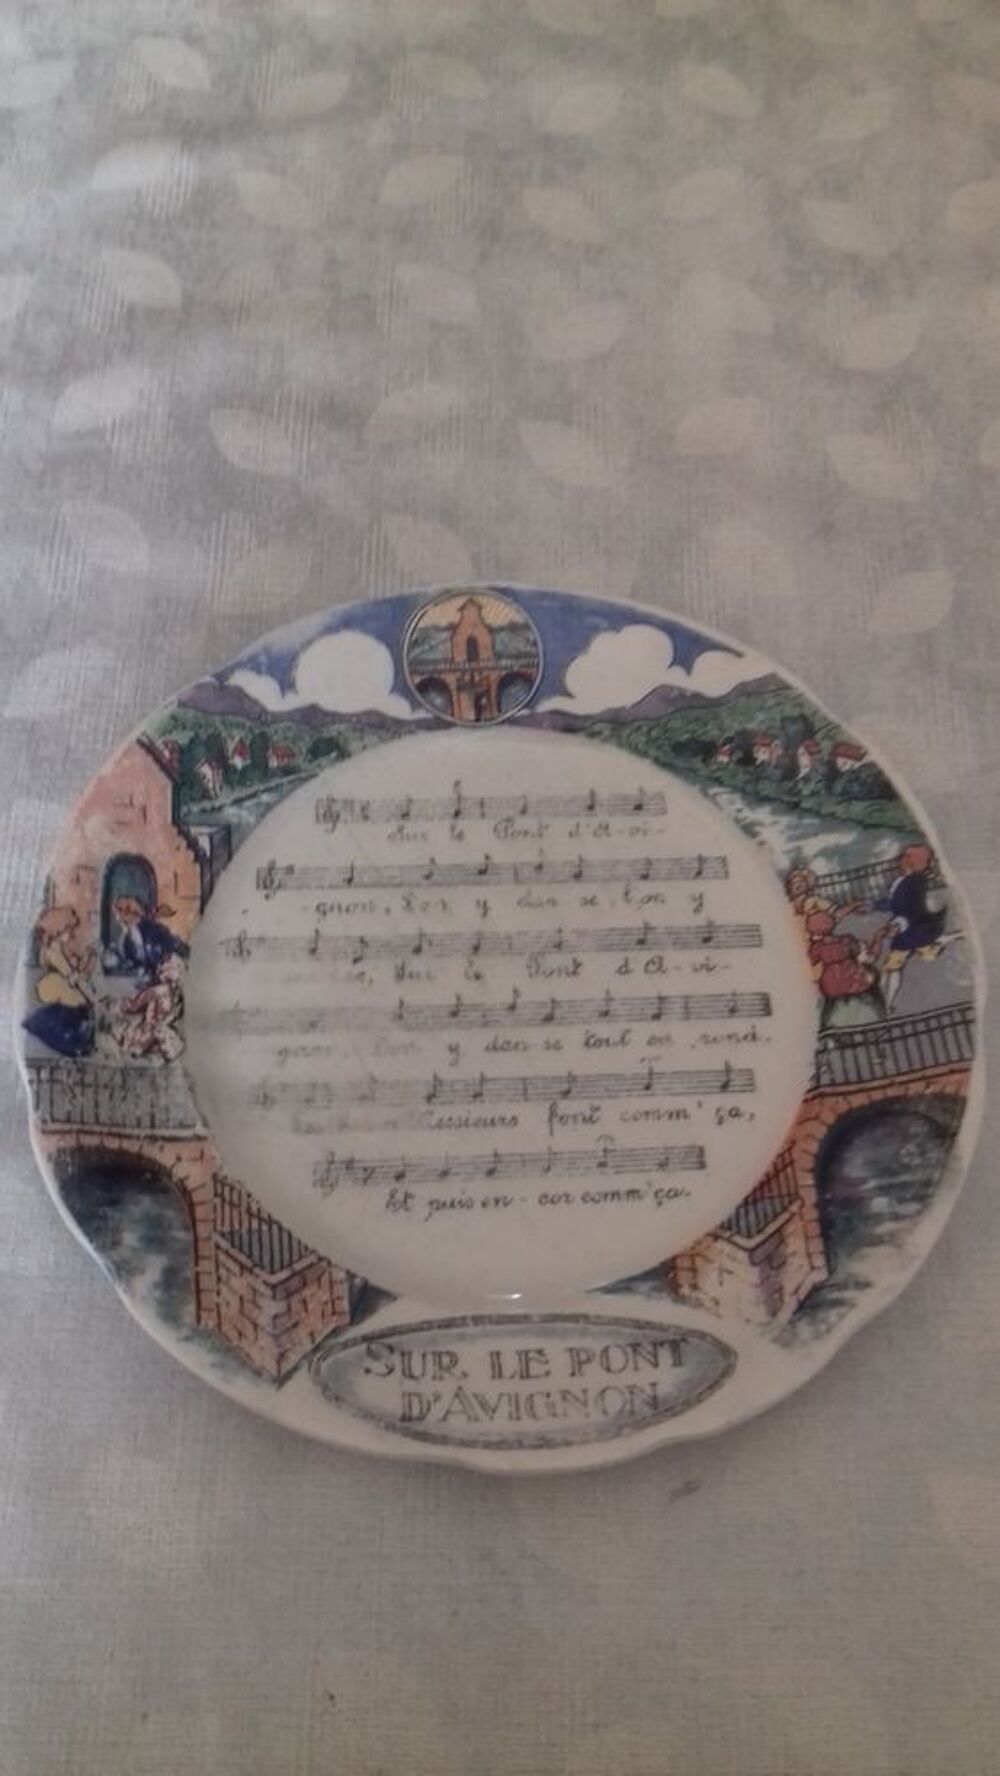 Sur le Pont d'A-vi-
-gnon, L'on y dan se, L'on y
Sur le Pont d'A-vi-
y dan se tout en rond.
Messieurs font comm' ça,
Et puis en-cor comm' ça.
SUR LE PONT
D'AVIGNON